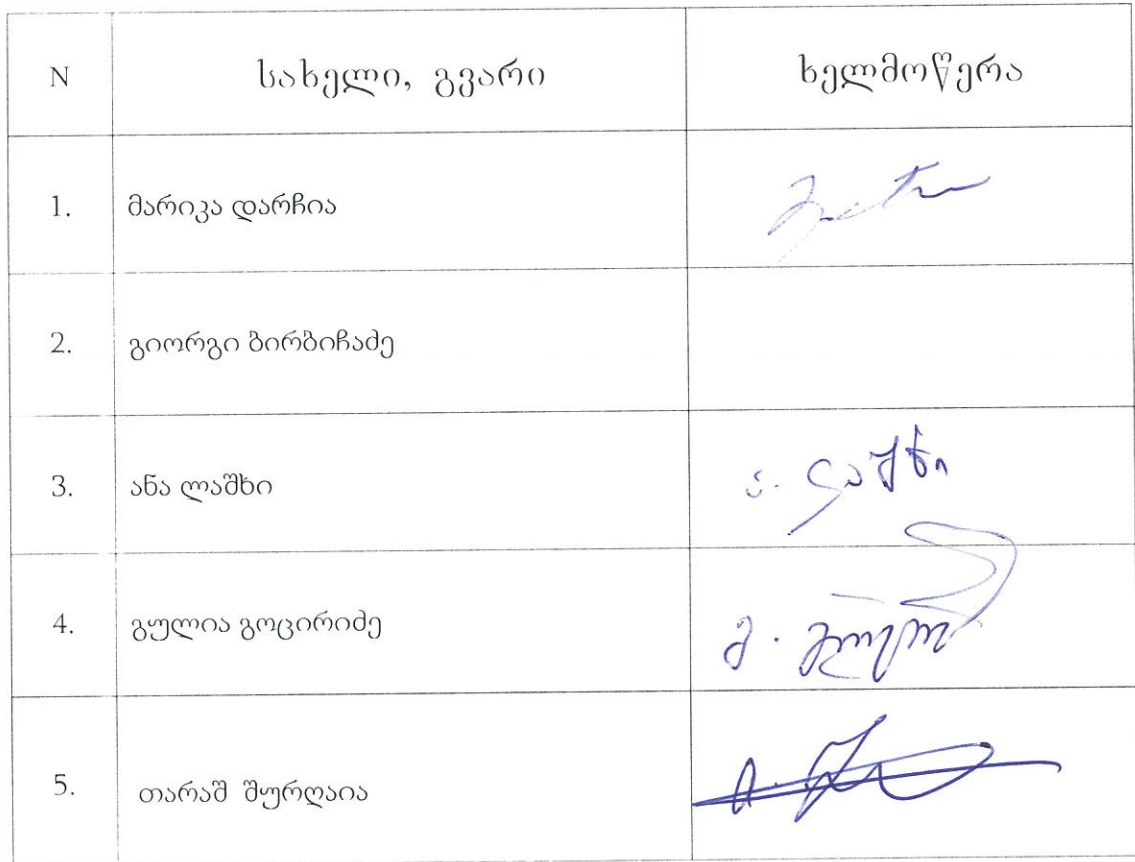 N სახელი, გვარი ხელმოწერა
1. მარიკა დარჩია
2. გიორგი ბირბიჩაძე
3. ანა ლაშხი ა. ლაშხი
4. გულია გოცირიძე
5. თარაშ შურღაია